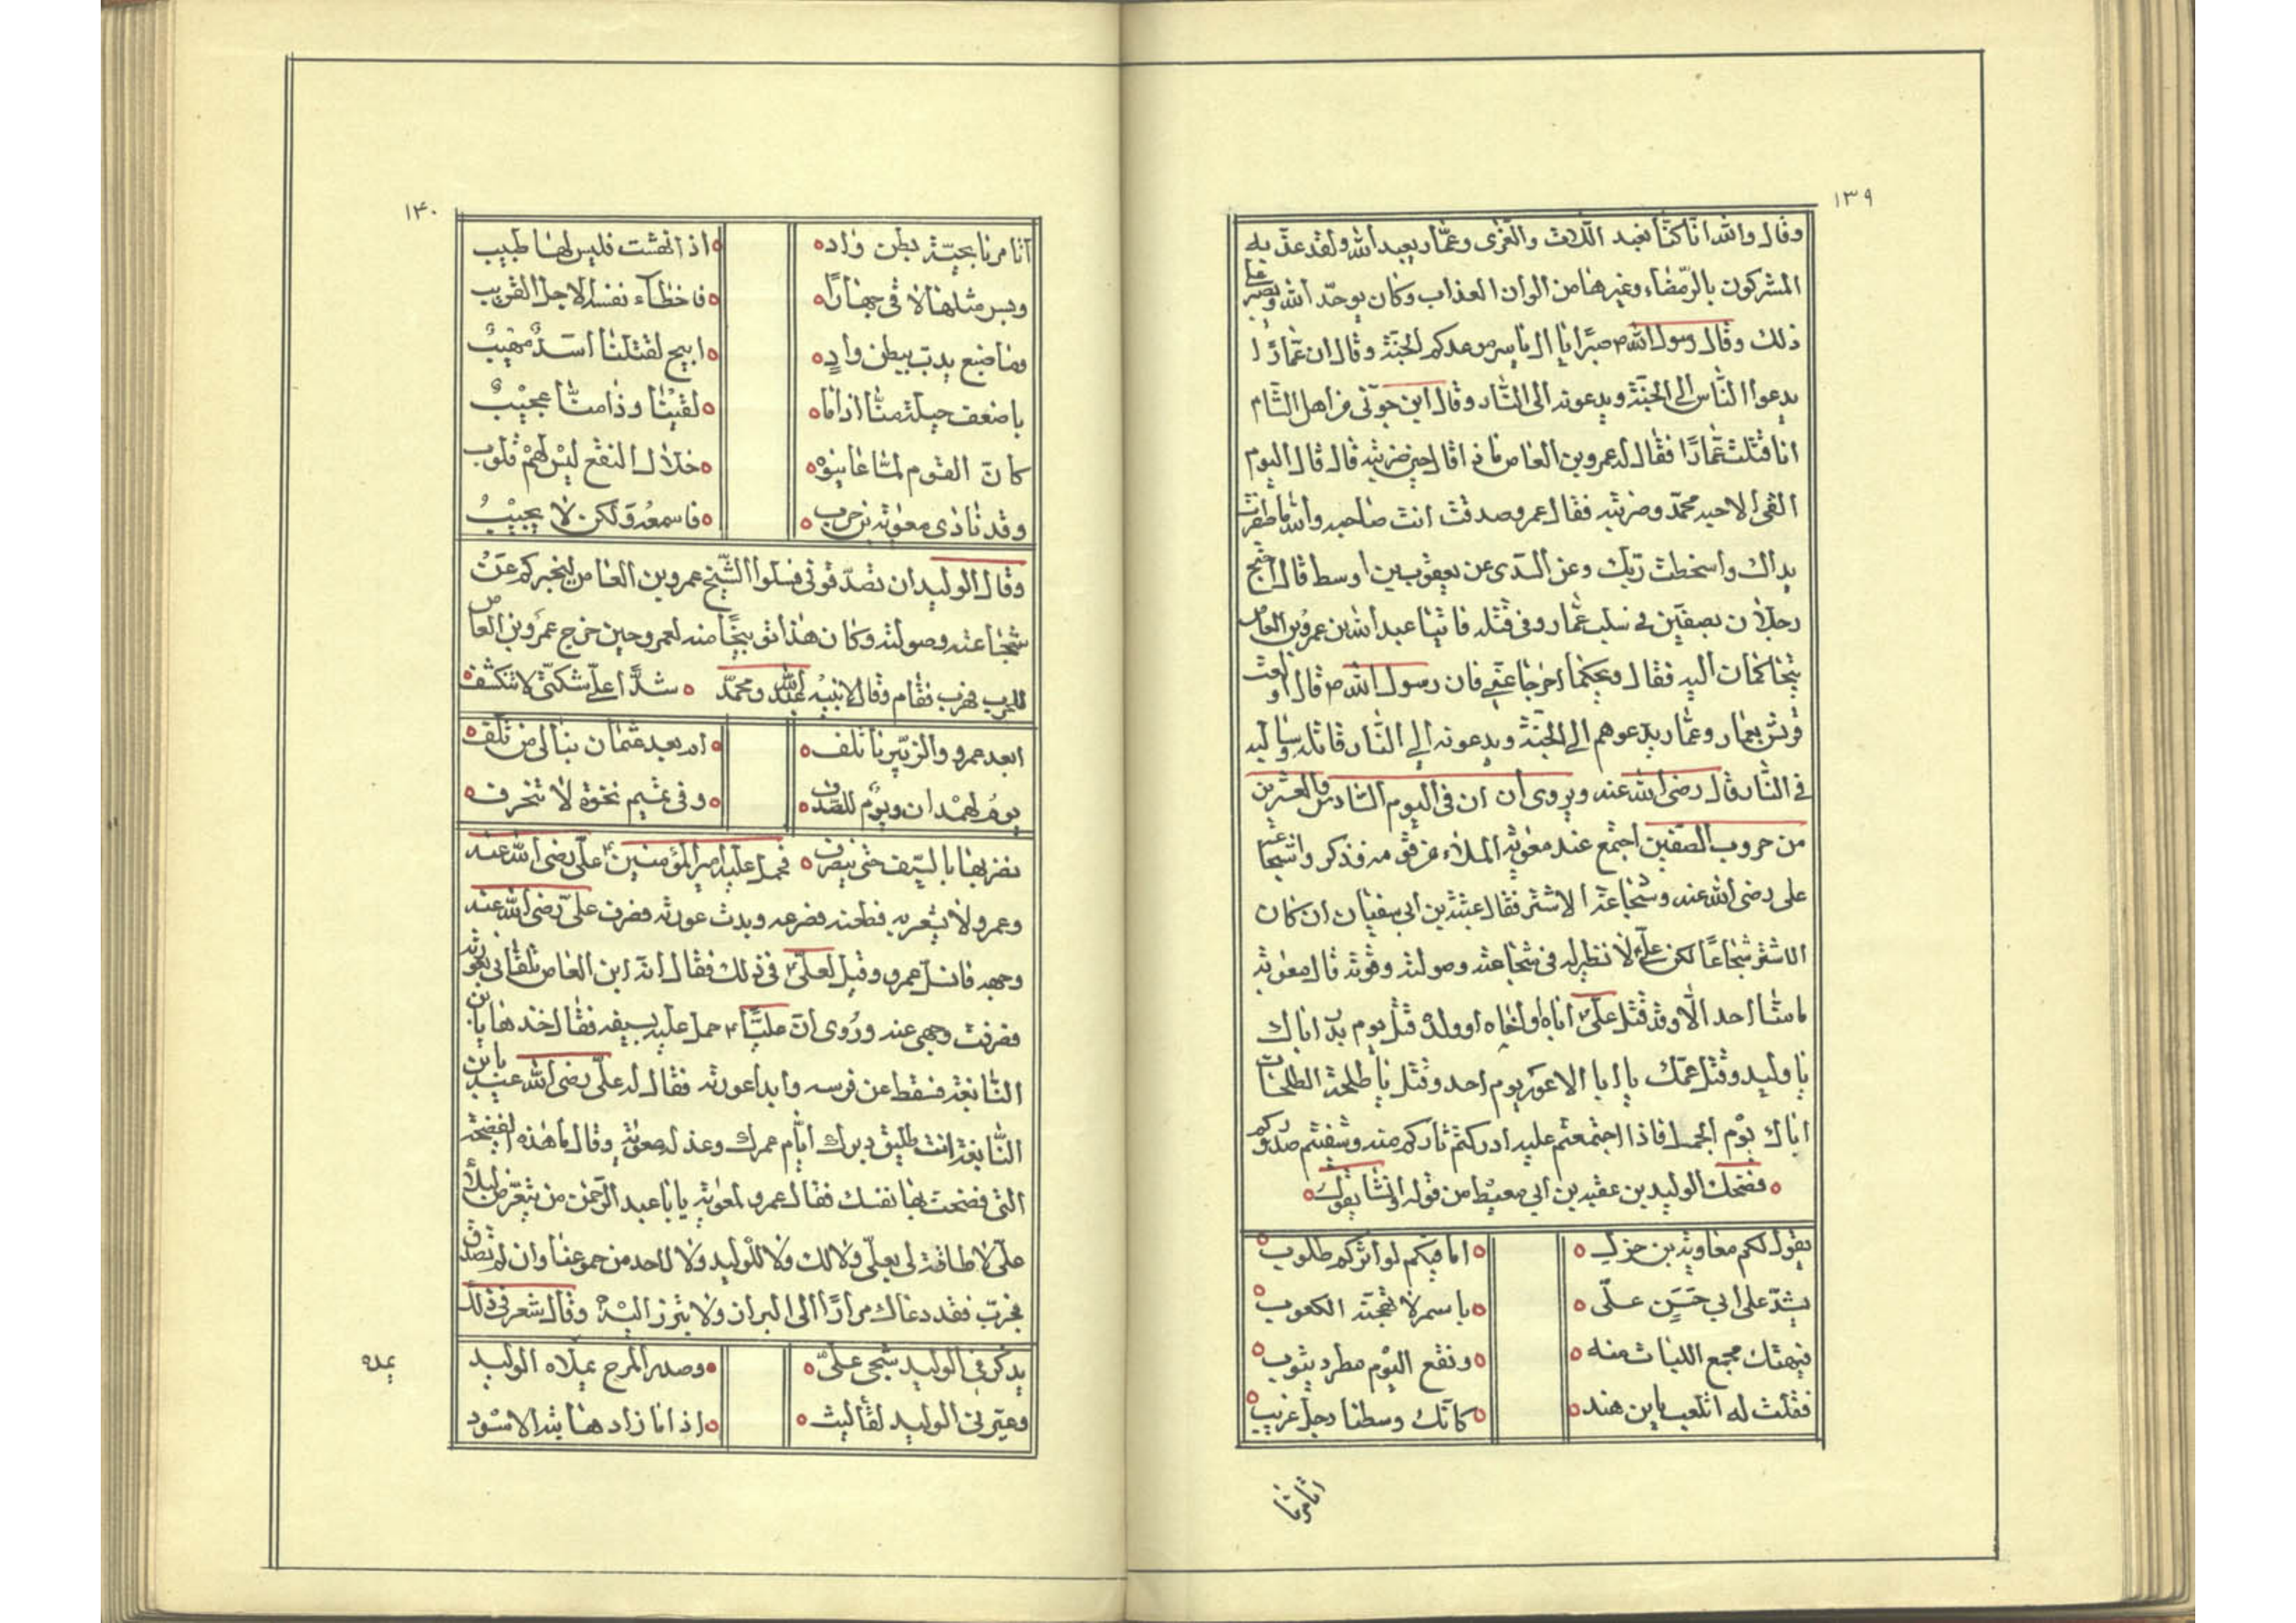 ١٣٩
وقال والله انا كنّا نعبد اللّات والعُزّى وعمّار يعبد الله ولقد عذّبه
المشركون بالرّمضاء وغيرها من الوان العذاب وكان يوحّد الله ويصبر على
ذلك وقال رسول الله ص صبرًا يا ال ياسر موعدكم الجنّة وقال ان عمّارًا
يدعوا النّاس الى الجنّة ويدعونه الى النّار وقال ابن جوتى من اهل الشّام
انا قتلت عمّارًا فقال له عمرو بن العاص ماذا قال حين ضربته قال قال اليوم
القى الاحبه محمّد وحزبه فقال عمرو صدقت انت صاحبه والله ما ظفرت
يداك واسخطت ربّك وعن السّدى عن يعقوب بن اوسط قال احتج
رجلان بصفّين فى سلب عمّار وفى قتله فاتيا عبد الله بن عمرو بن العاص
يتحاكمان اليه فقال ويحكما اخرجا عنّى فان رسول الله ص قال اولعت
قريش بعمار وعمّار يدعوهم الى الجنّة ويدعونه الى النّار قاتله وسالبه
فى النّار قال رضى الله عنه ويروى ان ان فى اليوم السّادس والعشرين
من حروب الصّفين اجتمع عند معوية الملاء من قومه فذكروا شجاعة
على رضى الله عنه وشجاعة الاشتر فقال عتبة بن ابى سفيان ان كان
الاشتر شجاعًا لكن علىّ لا نظير له فى شجاعته وصولته وقوته قال معوية
ما منّا احد الّا وقد قتل علىّ اباه او اخاه او ولده قتل يوم بدر اباك
يا وليد وقتل عمّك يا ابا الاعور يوم احد وقتل يا طلحة الطلحات
اباك يوم الجمل فاذا اجتمعتم عليه ادركتم ثاركم منه وشفيتم صدوركم
فضحك الوليد بن عقبه بن ابى معيط من قوله وانشا يقول
يقول لكم معاوية بن حرب اما فيكم لواتركم طلوب
يشدّ على ابى حَسَنٍ علىّ باسمر لا تهجنّه الكعوب
فيهتك مجمع اللبات منه ونقع اليوم مطرد يثوب
فقلت له اتلعب يابن هند كانّك وسطنا رجل غريب
اتامرنا
١٤٠
اتامرنا بحيّة بطن واد اذا نهشت فليس لها طبيب
وبسر مثلها لاقى جهارًا فاخطاء نفسه الاجل القريب
وما ضبع يدبّ ببطن وادٍ ابيح لقتلنا اسدٌ مهيبٌ
باضعف حيلة منّا اذا ما لقيْنا وذا منّا عجيْبٌ
كانّ القوم لمّا عاينوه خلال النقع ليْس لهمْ قلوب
وقد نادى معوية بن حرب فاسمعه ولكن لا يجيْبُ
وقال الوليد ان تصدّقونى فسلوا الشّيخ عمرو بن العاص ليخبركم عن
شجاعته وصولته وكان هذا توبيخًا منه لعمرو حين خرج عمرو بن العاص
للحرب فقام وقال لابنيْه عبد الله ومحمّد شدّا علىّ شكتى لا تنكشف
ابعد عمرو والزبّير ناتلف ام بعد عثمان
يوم لهمْدان ويومٌ للصّدف وفى تميم نخوة لا تنحرف
نضربها بالسّيف حتى ينصرف فحمل عليه امير المؤمنين علىّ رضى الله عنه
وعمرو لا يشعر به فطعنه فصرعه وبدت عورته فصرف علىّ رضى الله عنه
وجهه فانسلّ عمرو وقيل لعلىّ فى ذلك فقال انّه ابن العاص تلقّانى بعورته
فصرفت وجهى عنه ورُوى انّ عليًّا حمل عليه بسيفه فقال خذها يابن
النّابغة فسقط عن فرسه وابدا عورته فقال له علىّ رضى الله عنه يابن
النّابغة انت طليق دبرك ايّام عمرك وعذله معوية وقال ما هذه الفضيحة
التى فضحت بها نفسك فقال عمرو لمعوية يا ابا عبد الرّحمن من يتعرّض لبلاء
علىّ لا طاقة لى بعلىّ ولا لك ولا للْوليد ولا لاحد من جموعنا وان لم تصدّق
فجرّب فقد دعاك مرارًا الى البراز ولا تبرز اليْه وقال شعر فى ذلك
يذكرنى الوليد شجى علىّ وصدر المرء يملاه الوليد
وعيّرنى الوليد لقا ليث اذا ما زاد هابته الاسود